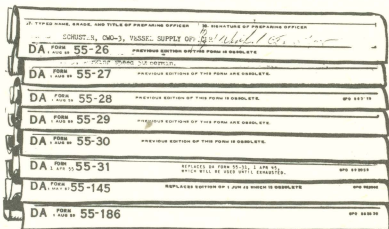 27. TYPED NAME, GRADE, AND TITLE OF PREPARING OFFICER 28. SIGNATURE OF PREPARING OFFICER
SCHUSTER, CWO-3, VESSEL SUPPLY OFF
DA FORM 1 AUG 59 55-26 PREVIOUS EDITION OF THIS FORM IS OBSOLETE.
DA FORM 1 AUG 59 55-27 PREVIOUS EDITIONS OF THIS FORM ARE OBSOLETE.
DA FORM 1 AUG 59 55-28 PREVIOUS EDITIONS OF THIS FORM IS OBSOLETE. GPO
DA FORM 1 AUG 59 55-29 PREVIOUS EDITIONS OF THIS FORM ARE OBSOLETE.
DA FORM 1 AUG 59 55-30 PREVIOUS EDITION OF THIS FORM IS OBSOLETE.
DA FORM 1 APR 55-31 REPLACES DA FORM 55-31, 1 APR 45,
WHICH WILL BE USED UNTIL EXHAUSTED. GPO
DA FORM 1 MAY 55-145 REPLACES EDITION OF 1 JUN WHICH IS OBSOLETE. GPO
DA FORM 1 AUG 59 55-186 GPO